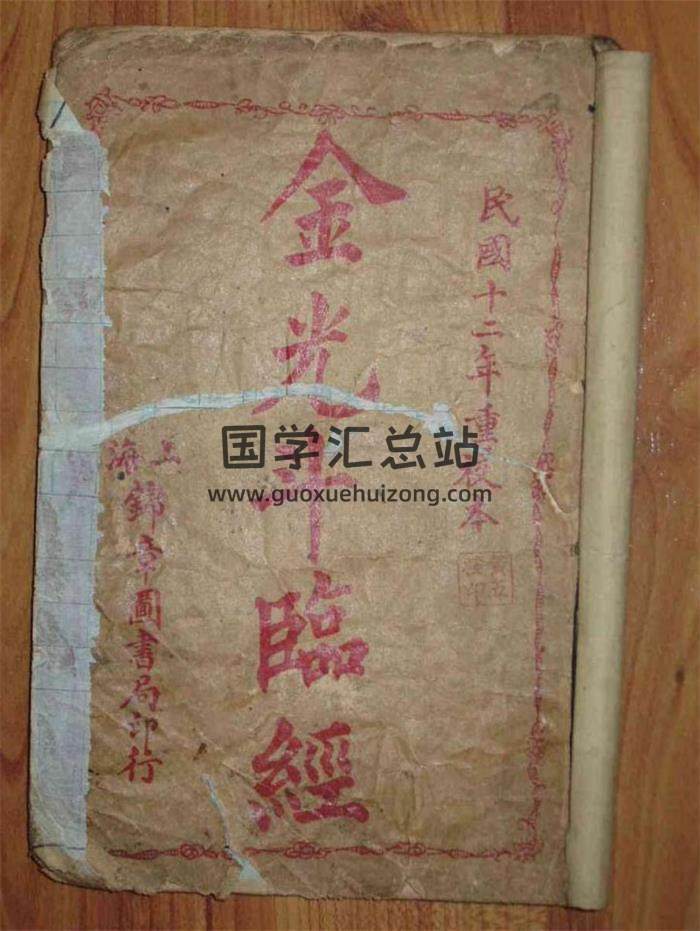 民國十二年重校本
金光斗臨經
上海錦章圖書局印行
国学汇总站
www.guoxuehuizong.com